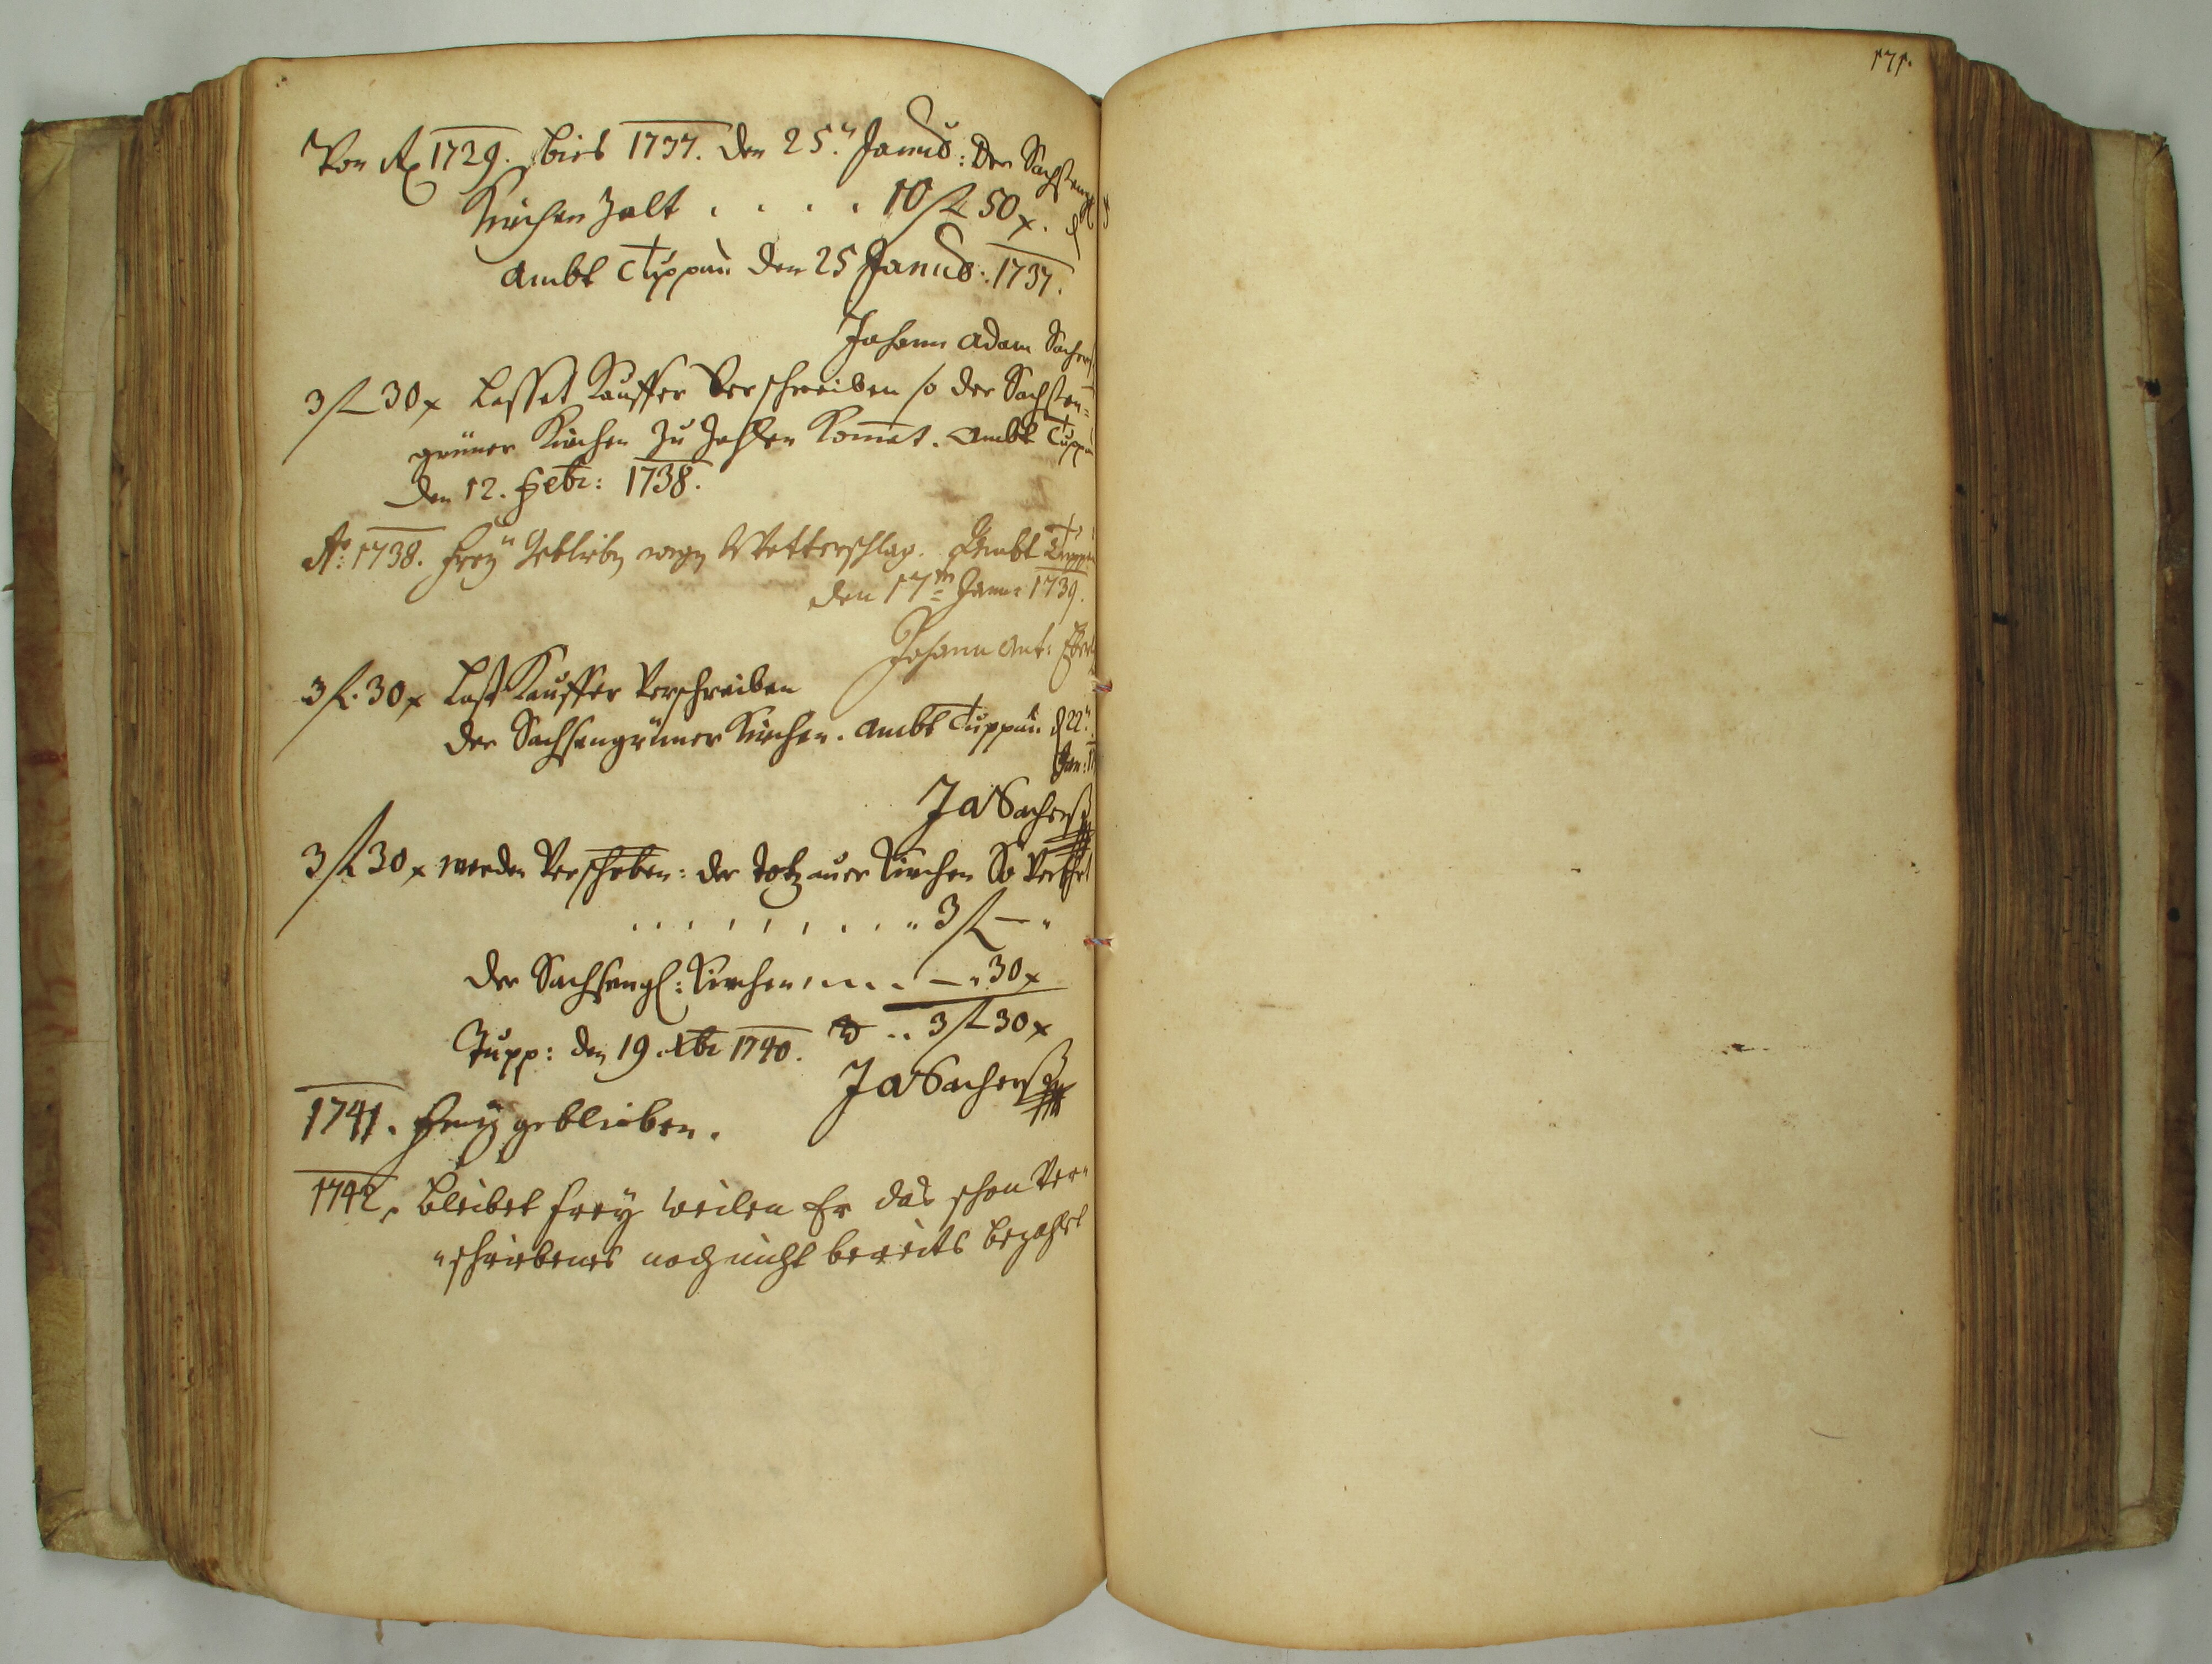 171.
Von Ao 1729. bies 1737. den 25.n Januar: der Sachsengl
Kirchen Zalt . . . . 10 fl 50 x.
Ambt Tuppau den 25 Januar: 1737.
Johann Adam Sachers
3 fl 30 x Lasset Kauffer Verschreiben so der Sachsen=
grüner Kirchen zu Zahlen Kommet. Ambt Tuppau
den 12. Febr: 1738.
Ao: 1738. frey geblieben wegen Wetterschlag. Ambt Tuppau
den 17ten Janu: 1739.
Johann Ant:
3 fl. 30 x Last Kauffer Verschreiben
der Sachsengrüner Kirchen. Ambt Tuppau d 22n
Jan:
JASachers
3 fl 30 x werden Verschrben: der Totzauer Kirchen So
. . . . . . . . . . 3 fl —
der Sachsengl: Kirchen . . . . — 30 x
3 fl 30 x
Tupp: den 19. Xbr 1740.
JASachers
1741. frey geblieben.
1742. Bleibet frey weilen Er das schon Ver=
=schriebenes noch nicht bereits bezahlt